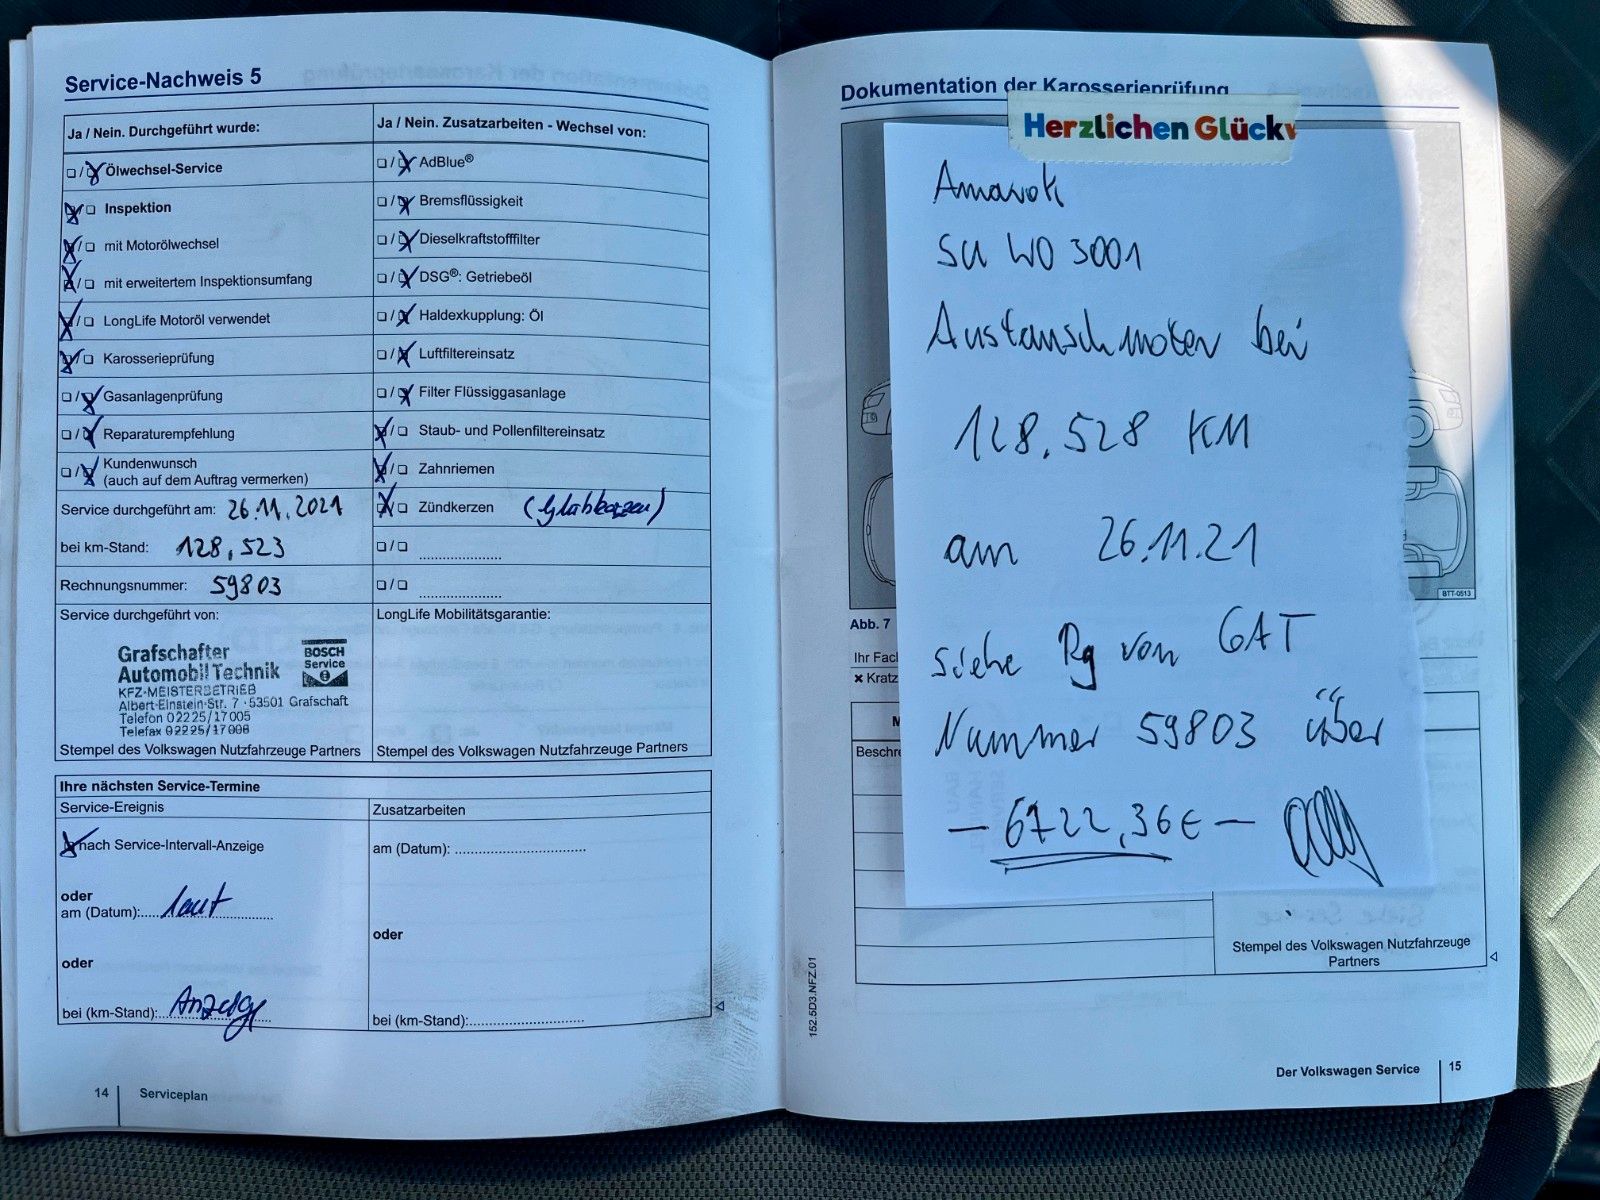 Service-Nachweis 5
Ja / Nein. Durchgeführt wurde:
Ölwechsel-Service
Inspektion
mit Motorölwechsel
mit erweitertem Inspektionsumfang
LongLife Motoröl verwendet
Karosserieprüfung
Gasanlagenprüfung
Reparaturempfehlung
Kundenwunsch
(auch auf dem Auftrag vermerken)
Service durchgeführt am: 26.11.2021
bei km-Stand: 128,523
Rechnungsnummer: 59803
Service durchgeführt von:
Grafschafter
Automobil Technik
BOSCH
Service
KFZ-MEISTERBETRIEB
Albert-Einstein-Str. 7 · 53501 Grafschaft
Telefon 02225/17005
Telefax 02225/17006
Stempel des Volkswagen Nutzfahrzeuge Partners
Ja / Nein. Zusatzarbeiten - Wechsel von:
AdBlue®
Bremsflüssigkeit
Dieselkraftstofffilter
DSG®: Getriebeöl
Haldexkupplung: Öl
Luftfiltereinsatz
Filter Flüssiggasanlage
Staub- und Pollenfiltereinsatz
Zahnriemen
Zündkerzen (Glühkerzen)
LongLife Mobilitätsgarantie:
Stempel des Volkswagen Nutzfahrzeuge Partners
Ihre nächsten Service-Termine
Service-Ereignis
nach Service-Intervall-Anzeige
oder
am (Datum): laut
oder
bei (km-Stand): Anzeige
Zusatzarbeiten
am (Datum):
oder
bei (km-Stand):
14 Serviceplan
Dokumentation der Karosserieprüfung
Herzlichen Glückw
Amarok
SU WO 3001
Austauschmotor bei
128.528 KM
am 26.11.21
siehe Rg von GAT
Nummer 59803 über
- 6722,36€ -
BTT-0513
Abb. 7
Ihr Fac
× Kratz
M
Beschre
Stempel des Volkswagen Nutzfahrzeuge
Partners
152.5D3.NFZ.01
Der Volkswagen Service 15